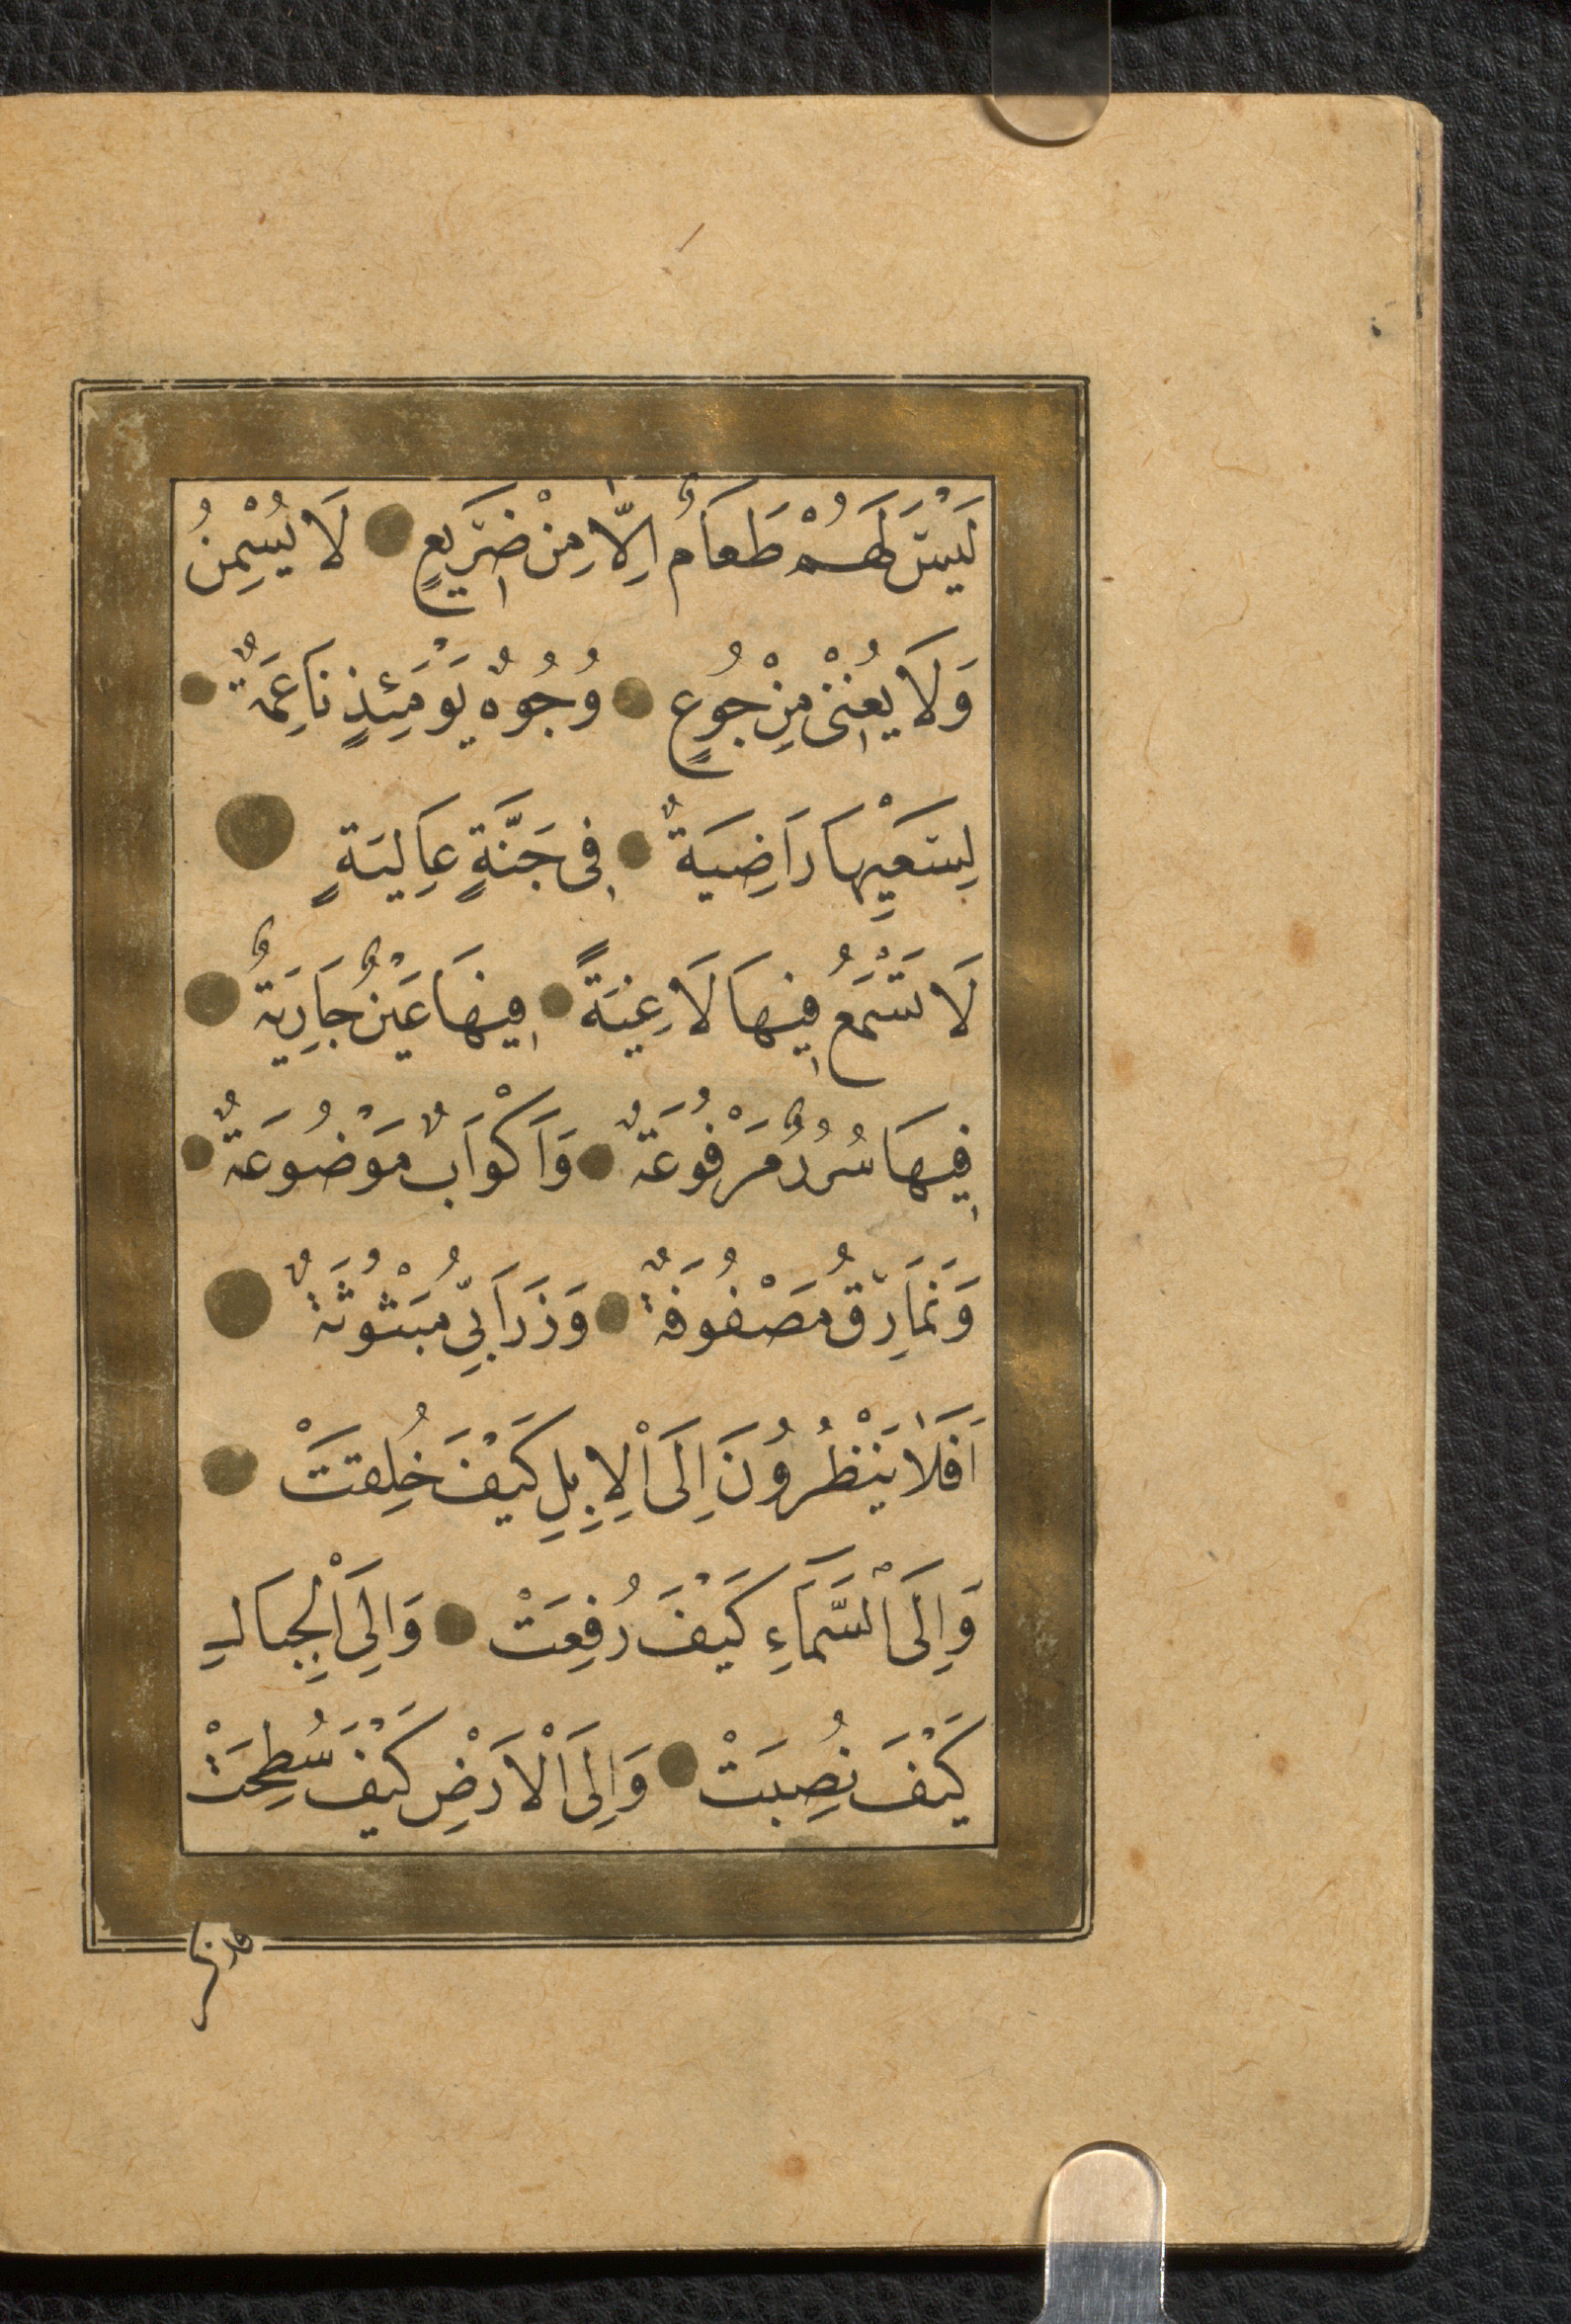 لَيْسَ لَهُمْ طَعَامٌ اِلَّا مِنْ ضَرِيعٍ لَا يُسْمِنُ
وَلَا يُغْنِى مِنْ جُوعٍ وُجُوهٌ يَوْمَئِذٍ نَاعِمَةٌ
لِسَعْيِهَا رَاضِيَةٌ فِى جَنَّةٍ عَالِيَةٍ
لَا تَسْمَعُ فِيهَا لَاغِيَةً فِيهَا عَيْنٌ جَارِيَةٌ
فِيهَا سُرُرٌ مَرْفُوعَةٌ وَاَكْوَابٌ مَوْضُوعَةٌ
وَنَمَارِقُ مَصْفُوفَةٌ وَزَرَابِيُّ مَبْثُوثَةٌ
اَفَلَا يَنْظُرُونَ اِلَى الْاِبِلِ كَيْفَ خُلِقَتْ
وَاِلَى السَّمَاءِ كَيْفَ رُفِعَتْ وَاِلَى الْجِبَالِ
كَيْفَ نُصِبَتْ وَاِلَى الْاَرْضِ كَيْفَ سُطِحَتْ
فذكر